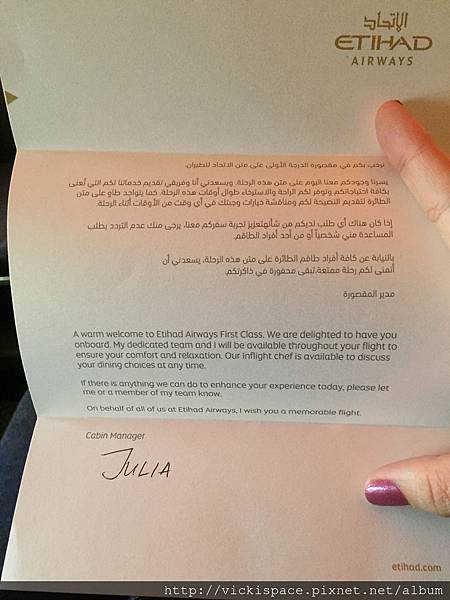 الإتحاد
ETIHAD
AIRWAYS
نرحب بكم في مقصورة الدرجة الأولى على متن الاتحاد للطيران.
يسرنا وجودكم معنا اليوم على متن هذه الرحلة. ويسعدني أنا وفريقي تقديم خدماتنا لكم التي تُعنى
بكافة احتياجاتكم وتوفر لكم الراحة والاسترخاء طوال أوقات هذه الرحلة. كما يتواجد طاهٍ على متن
الطائرة لتقديم النصيحة لكم ومناقشة خيارات وجبتك في أي وقت من الأوقات أثناء الرحلة.
إذا كان هناك أي طلب لديكم من شأنهتعزيز تجربة سفركم معنا، يرجى منك عدم التردد بطلب
المساعدة مني شخصياً أو من أحد أفراد الطاقم.
بالنيابة عن كافة أفراد طاقم الطائرة على متن هذه الرحلة، يسعدني أن
أتمنى لكم رحلة ممتعة،تبقى محفورة في ذاكرتكم.
مدير المقصورة
A warm welcome to Etihad Airways First Class. We are delighted to have you
onboard. My dedicated team and I will be available throughout your flight to
ensure your comfort and relaxation. Our Inflight chef is available to discuss
your dining choices at any time.
If there is anything we can do to enhance your experience today, please let
me or a member of my team know.
On behalf of all of us at Etihad Airways, I wish you a memorable flight.
Cabin Manager
JULIA
etihad.com
http://vickispace.pixnet.net/album